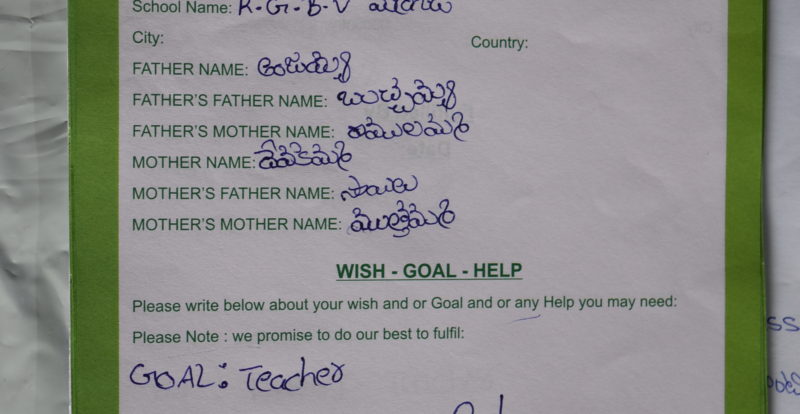 School Name: K.G.B.V
City:
Country:
FATHER NAME:
FATHER'S FATHER NAME: బుచ్చెమ్మ
FATHER'S MOTHER NAME:
MOTHER NAME:
MOTHER'S FATHER NAME: సాయిలు
MOTHER'S MOTHER NAME:
WISH - GOAL - HELP
Please write below about your wish and or Goal and or any Help you may need:
Please Note : we promise to do our best to fulfil:
GOAL: Teacher